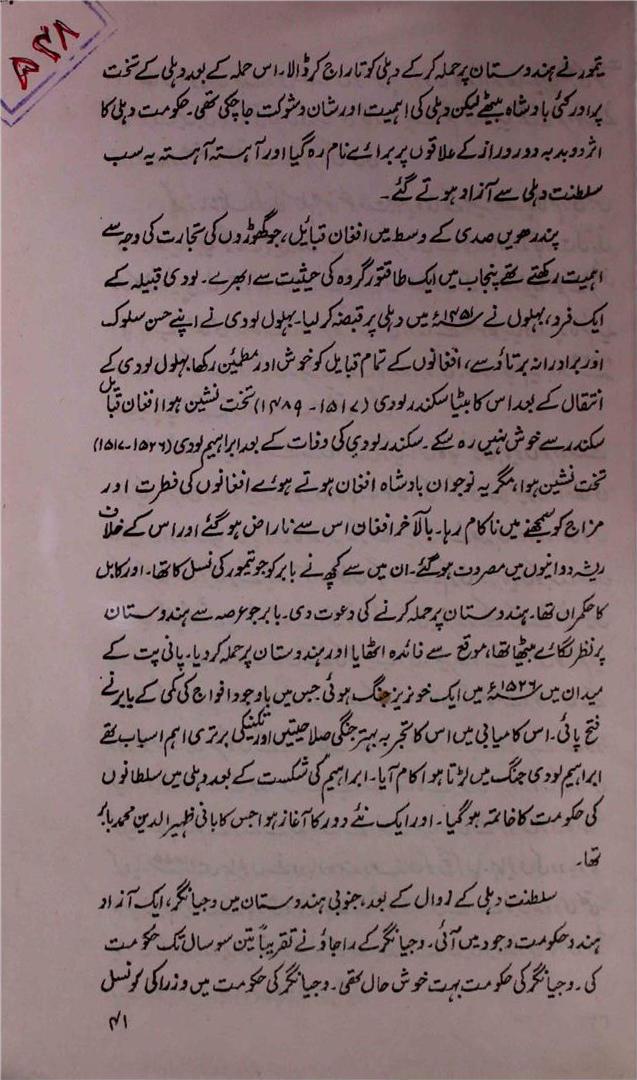 ۵۴۸
تیمور نے ہندوستان پر حملہ کر کے دہلی کو تاراج کر ڈالا۔ اس حملہ کے بعد دہلی کے تخت
پر اور کئی بادشاہ بیٹھے لیکن دہلی کی اہمیت اور شان و شوکت جا چکی تھی۔ حکومت دہلی کا
اثر و دبدبہ دور دراز کے علاقوں پر برائے نام رہ گیا اور آہستہ آہستہ یہ سب
سلطنت دہلی سے آزاد ہوتے گئے۔
پندرھویں صدی کے وسط میں افغان قبائل، جو گھوڑوں کی تجارت کی وجہ سے
اہمیت رکھتے تھے پنجاب میں ایک طاقتور گروہ کی حیثیت سے ابھرے۔ لودی قبیلہ کے
ایک فرد، بہلول نے ۱۴۵۱ء میں دہلی پر قبضہ کر لیا۔ بہلول لودی نے اپنے حسن سلوک
اور برادرانہ برتاؤ سے، افغانوں کے تمام قبایل کو خوش اور مطمئین رکھا۔ بہلول لودی کے
انتقال کے بعد اس کا بیٹا سکندر لودی (۱۵۱۷ - ۱۴۸۹) تخت نشین ہوا افغان قبائل
سکندر سے خوش نہیں رہ سکے۔ سکندر لودی کی وفات کے بعد ابراہیم لودی (۱۵۲۶-۱۵۱۷)
تخت نشین ہوا، مگر یہ نوجوان بادشاہ افغان ہوتے ہوئے افغانوں کی فطرت اور
مزاج کو سمجھنے میں ناکام رہا۔ بالآخر افغان اس سے ناراض ہو گئے اور اس کے خلاف
ریشہ دوانیوں میں مصروف ہو گئے۔ ان میں سے کچھ نے بابر کو جو تیمور کی نسل کا تھا۔ اور کابل
کا حکمراں تھا۔ ہندوستان پر حملہ کرنے کی دعوت دی۔ بابر جو عرصہ سے ہندوستان
پر نظر لگائے بیٹھا تھا، موقع سے فائدہ اٹھایا اور ہندوستان پر حملہ کر دیا۔ پانی پت کے
میدان میں ۱۵۲۶ء میں ایک خونریز جنگ ہوئی جس میں باوجود افواج کی کمی کے بابر نے
فتح پائی۔ اس کامیابی میں اس کا تجربہ بہتر جنگی صلاحیتیں اور تکنیکی برتری اہم اسباب تھے
ابراہیم لودی جنگ میں لڑتا ہوا کام آیا۔ ابراہیم کی شکست کے بعد دہلی میں سلطانوں
کی حکومت کا خاتمہ ہو گیا۔ اور ایک نئے دور کا آغاز ہوا جس کا بانی ظہیر الدین محمد بابر
تھا۔
سلطنت دہلی کے زوال کے بعد، جنوبی ہندوستان میں وجیانگر، ایک آزاد
ہندو حکومت وجود میں آئی۔ وجیانگر کے راجاؤ نے تقریباً تین سو سال تک حکومت
کی۔ وجیانگر کی حکومت بہت خوش حال تھی۔ وجیانگر کی حکومت میں وزرا کی کونسل
۴۱